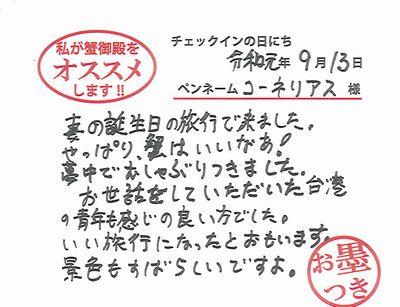 私が蟹御殿を
オススメ
します!!
チェックインの日にち
令和元年 9月13日
ペンネーム コーネリアス 様
妻の誕生日の旅行で来ました。
やっぱり、蟹はいいなあ!
夢中でむしゃぶりつきました。
お世話をしていただいた台湾
の青年も感じの良い方でした。
いい旅行になったとおもいます。
景色もすばらしいですよ。
お墨
つき